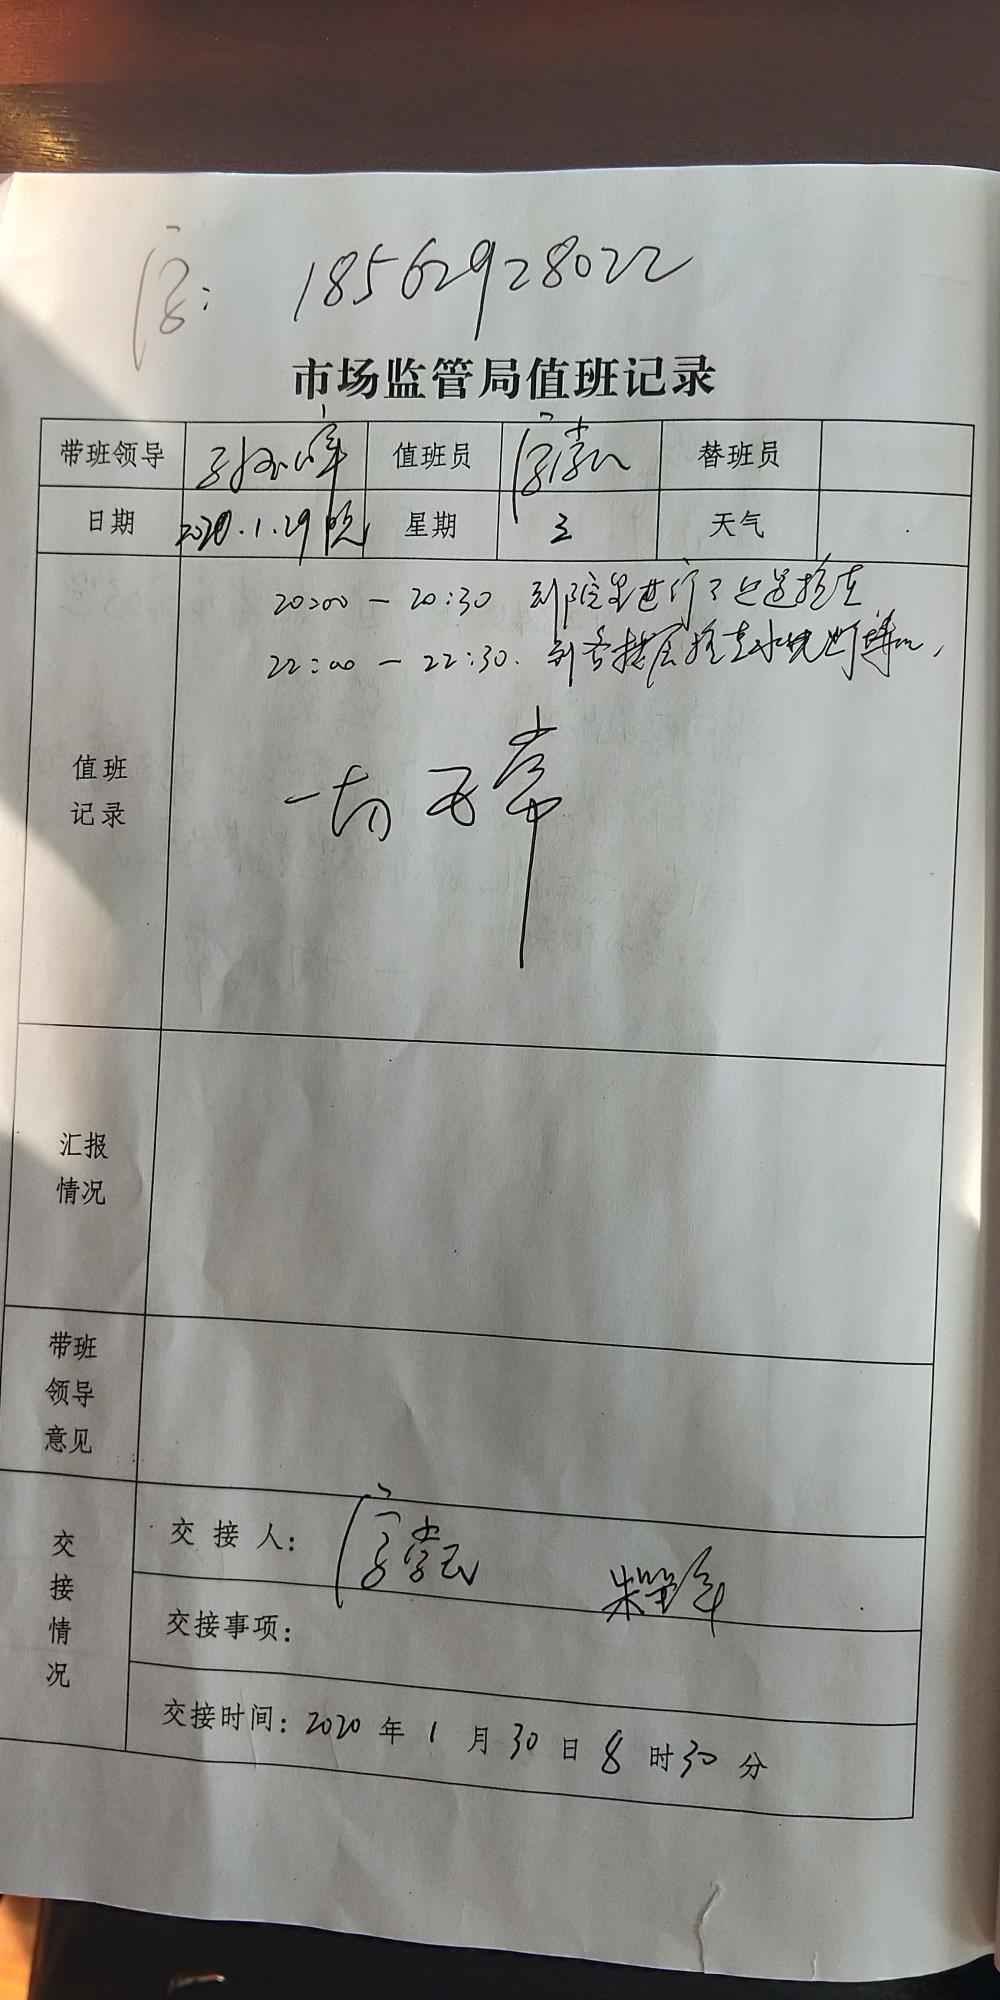 18562928022
市场监管局值班记录
带班领导 值班员 替班员
日期 2020.1.29晚 星期 三 天气
值班记录
20:00—20:30 到院里进行了巡逻检查
22:00—22:30. 到各楼层检查水
一切正常
汇报情况
带班领导意见
交接情况
交接人:
交接事项:
交接时间:2020年1月30日8时30分